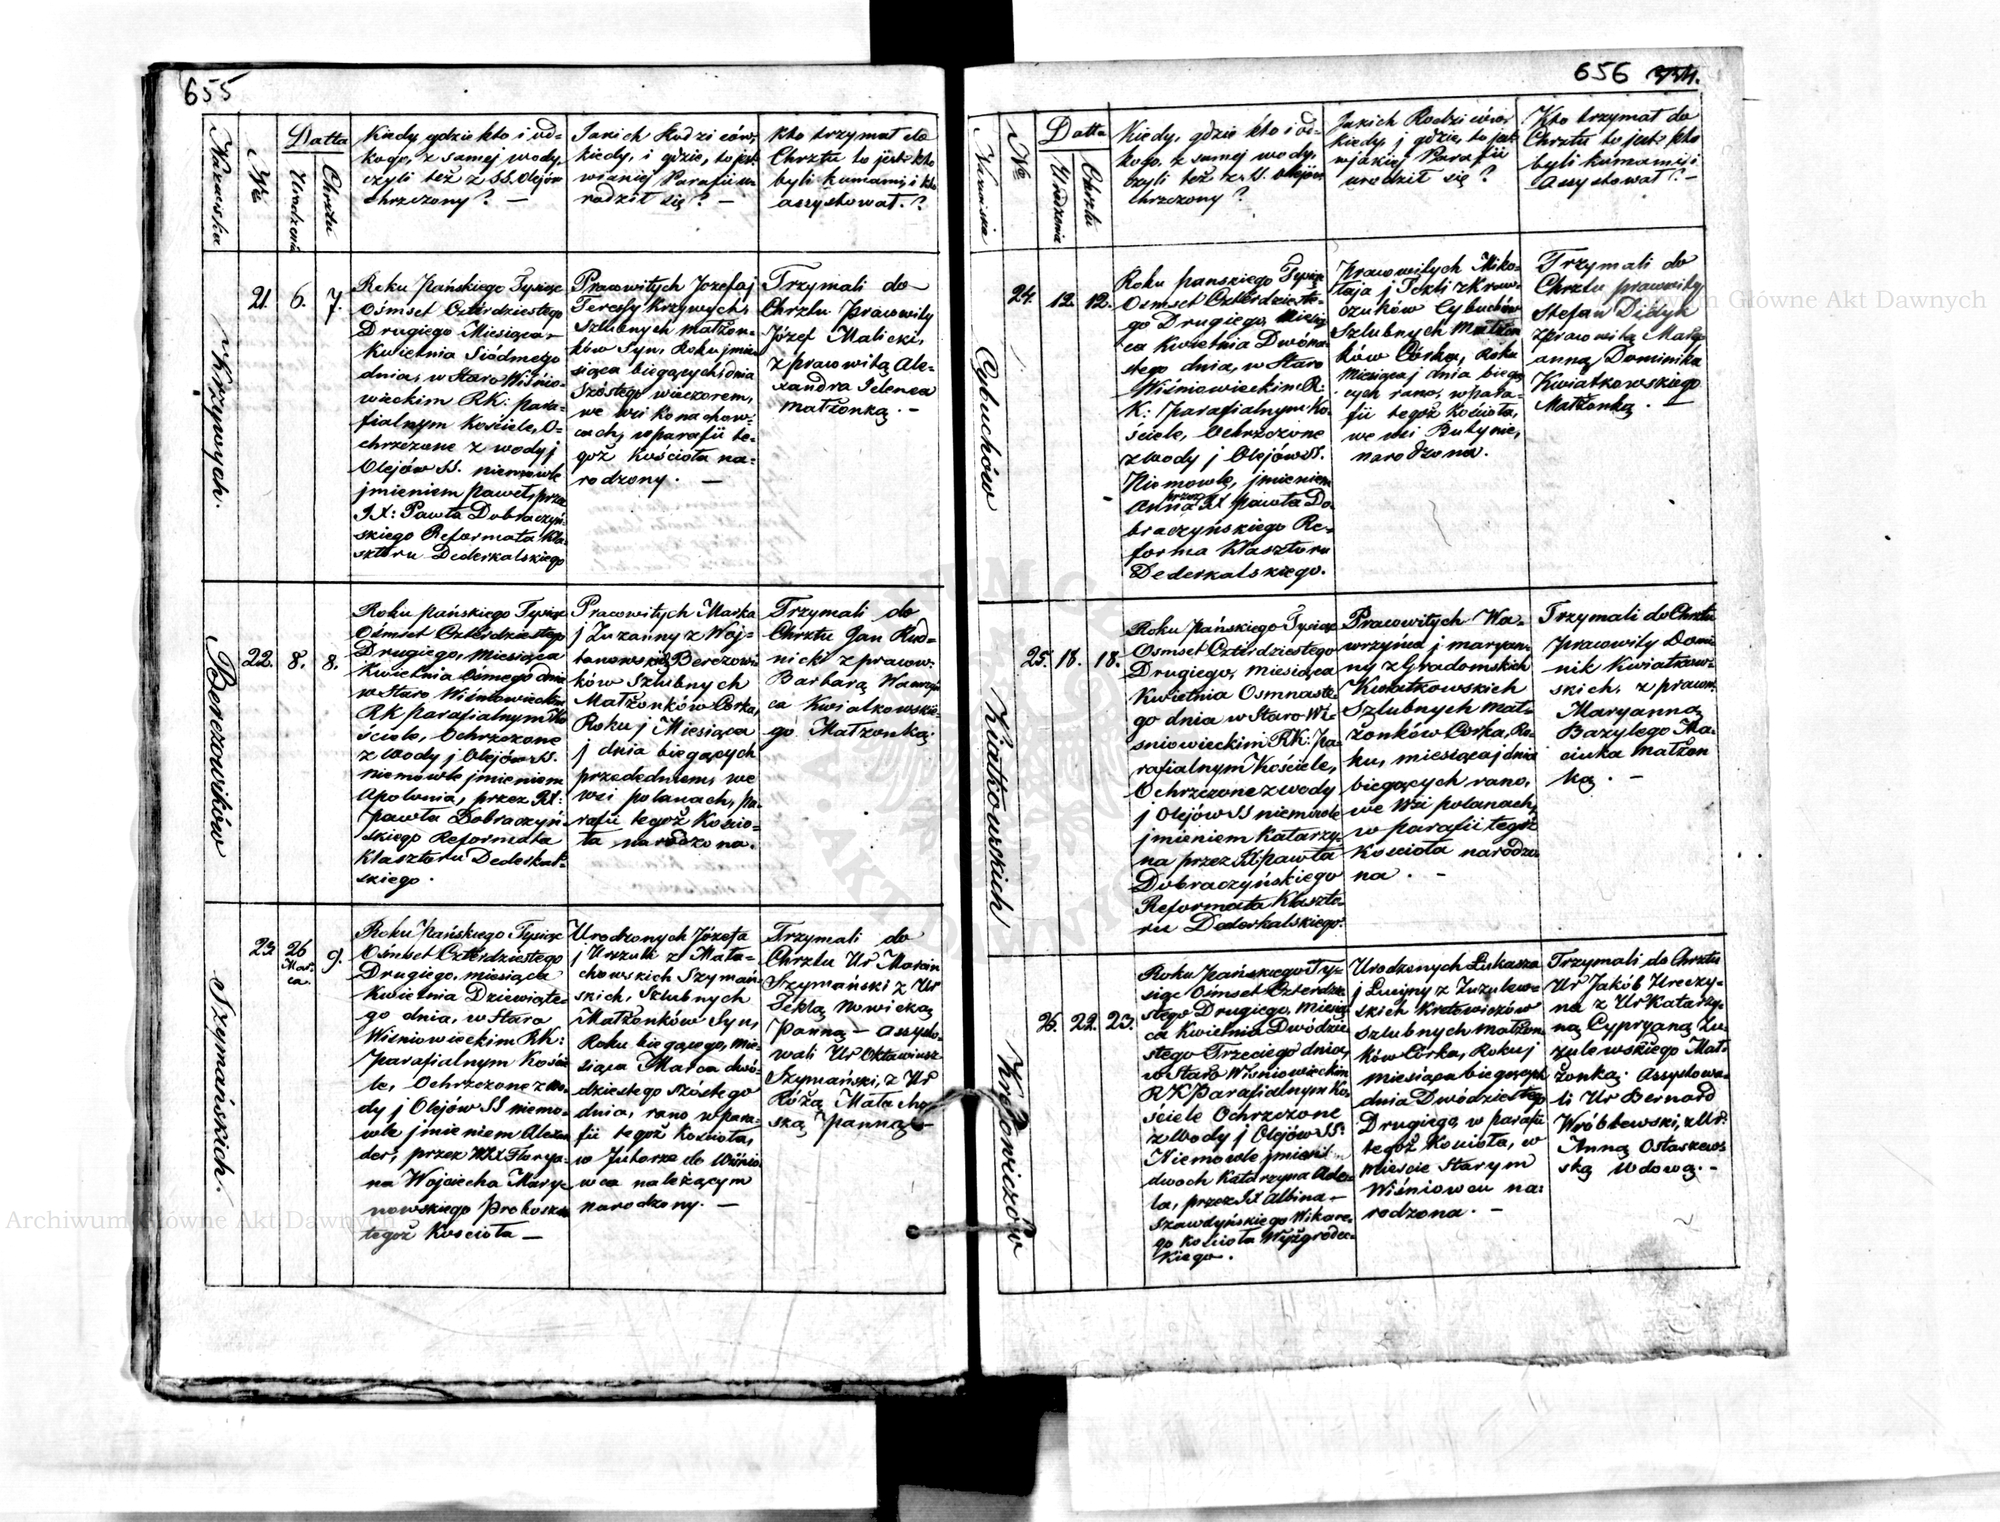 655
Nazwiska
No
Datta
Urodzenia
Chrztu
Kiedy gdzie kto i od-
kogo, z samej wody,
czyli też z SS. Olejów
chrzczony? —
Jakich Rodziców,
kiedy, i gdzie, to jest
w jakiej Parafii u-
rodził się? —
Kto trzymał do
Chrztu to jest: kto
byli kumami, i kto
assystował.?
Krzywych.
21.
6.
7.
Roku Pańskiego Tysiąc
Ośmset Czterdziestego
Drugiego Miesiąca
Kwietnia Siódmego
dnia, w Staro Wiśnio-
wieckim RK: para-
fialnym Kościele, O-
chrzczone z wody j
Olejów SS. niemowle
jmieniem Paweł, przez
JX: Pawła Dobraczyń-
skiego Reformata Kla-
sztoru Dederkalskiego
Pracowitych Jozefa j
Teressy Krzywych,
Szlubnych Małżon-
ków Syn, Roku j mie-
siąca bieących dnia
Szóstego wieczorem,
we wsi Konachow-
cach, w parafii te-
goż Kościoła na-
rodzony. —
Trzymali do
Chrztu Pracowity
Józef Malicki,
z pracowitą Ale-
xandra Jelenca
Małżonką. -
Berezowików
22.
8.
8.
Roku Pańskiego Tysiąc
Ośmset Czterdziestego
Drugiego, Miesiąca
Kwietnia Osmego dnia
w Staro Wiśniowieckim
RK parafialnym Ko
ściele, Ochrzczone
z wody j Olejów SS.
niemowle jmieniem
Apolonia, przez JX:
Pawła Dobraczyń-
skiego Reformata
Klasztoru Dederkal-
skiego.
Pracowitych Marka
j Zuzanny z Woj-
tanowskich Berezowi-
ków Szlubnych
Małżonków Córka,
Roku j Miesiąca
j dnia bieących
przededniem, we
wsi polanach, pa-
rafii tegoż Kościo-
ła narodzona.
Trzymali do
Chrztu Jan Rud-
nicki z pracow.
Barbarą Wawrzyń
ca Kwiatkowskie-
go Małżonką.
Szymańskich.
23
26
Mar-
ca.
9.
Roku Pańskiego Tysiąc
Ośmset Czterdziestego
Drugiego, miesiąca
Kwietnia Dziewiąte-
go dnia, w Staro
Wiśniowieckim RK:
Parafialnym Kościo
le, Ochrzczone z wo-
dy j Olejów SS niemo-
wle jmieniem Alexan
der, przez WJX Florya-
na Wojciecha Mary-
nowskiego Proboszcza
tegoż Kościoła —
Urodzonych Józefa
j Urszuli z Mała-
chowskich Szymań-
skich, Szlubnych
Małżonków Syn,
Roku bieącego, mie-
siąca Marca dwó-
dziestego szóstego
dnia, rano w para-
fii tegoż Kościoła,
w Jutorze do Wiśnio-
wca należącym
narodzony. —
Trzymali do
Chrztu Ur Marcin
Szymański z Ur
Teklą Nowicką
Panną — Assysto-
wali Ur Oktawiusz
Szymański, z Ur
Różą Małacho-
ską Panną —
656
Nazwiska
No
Datta
Urodzenia
Chrztu
Kiedy, gdzie kto i od-
kogo, z samej wody,
czyli też z S.S. olejów
chrzczony?
Jakich Rodziców
kiedy, j gdzie, to jest
w jakiej Parafii
urodził się?
Kto trzymał do
Chrztu to jest: kto
byli kumami, i
Assystował? —
Cybuchów
24.
12.
12.
Roku pańskiego Tysiąc
Ośmset Czterdzieste-
go Drugiego, Miesią
ca Kwietnia Dwóna-
stego dnia, w Staro
Wiśniowieckim R:
K: Parafialnym Ko-
ściele, Ochrzczone
z wody j Olejów SS.
Niemowle, jmieniem
Anna przez JX Pawła Do-
braczyńskiego Re-
forma Klasztoru
Dederkalskiego.
Pracowitych Miko-
łaja j Tekli z Kraw-
czuków Cybuchów
Szlubnych Małżon
ków Córka, Roku
Miesiąca j dnia bieą-
cych rano, w para-
fii tegoż Kościoła,
we wsi Butynie,
narodzona.
Trzymali do
Chrztu pracowity
Stefan Didyk
z pracowitą Mary
anną, Dominika
Kwiatkowskiego
Małżonką. —
Kwiatkowskich
25.
18.
18.
Roku Pańskiego Tysiąc
Ośmset Czterdziestego
Drugiego, miesiąca
Kwietnia Osmnaste-
go dnia w Staro Wi-
śniowieckim RK: Pa-
rafialnym Kościele,
Ochrzczone z wody
j Olejów SS niemowle
jmieniem Katarzy-
na przez JX Pawła
Dobraczyńskiego
Reformata Klaszto-
ru Dederkalskiego.
Pracowitych Wa-
wrzyńca j Maryan-
ny z Gradomskich
Kwiatkowskich
Szlubnych Mał-
żonków Córka, Ro-
ku, miesiąca j dnia
bieących rano,
we wsi polanach,
w parafii tegoż
Kościoła narodzo
na. -
Trzymali do Chrztu
Pracowity Domi-
nik Kwiatkow-
skich, z pracow.
Maryanną
Bazylego Ma-
ciuka Małżon
ką. —
Kretowiczów
26.
22.
23.
Roku Pańskiego Ty-
siąc Ośmset Czterdzie
stego Drugiego, Miesią
ca Kwietnia Dwódzie
stego Trzeciego dnia,
w Staro Wiśniowieckim
RK Parafialnym Ko-
ściele Ochrzczone
z wody j Olejów SS.
Niemowle jmieni
dwoch Katarzyna Ade-
la, przez JX Albina
Szawdyńskiego Wikare-
go Kościoła Wyżgrodec-
kiego.
Urodzonych Łukasza
j Lucyny z Zuzulew-
skich Kretowiczów
Szlubnych Małżon
ków Córka, Roku j
Miesiąca bieących
dnia Dwódziestego
Drugiego, w parafii
tegoż Kościoła, w
mieście Starym
Wiśniowcu na-
rodzona. —
Trzymali do Chrztu
Ur Jakób Hreczy-
na z Ur Katarzy-
ną Cypryana Zu-
zulewskiego Mał-
żonką. Assystowa-
li Ur Bernard
Wróblewski, z Ur:
Anną Ostaszews-
ską Wdową. -
Archiwum Główne Akt Dawnych
Archiwum Główne Akt Dawnych